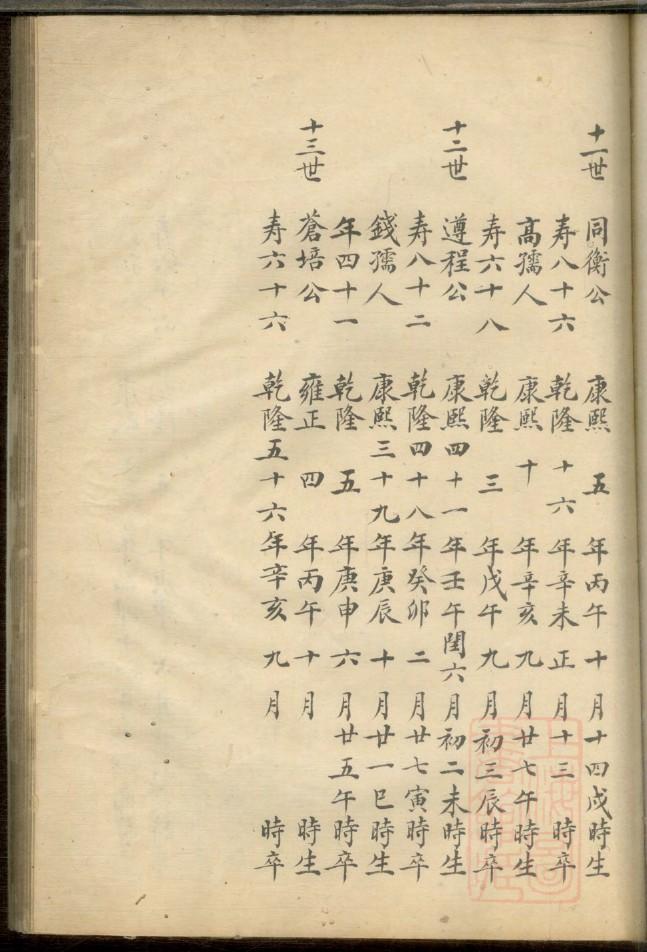 十一世 同衡公 康熙 五 年丙午 十 月十四戌時生
寿八十六 乾隆 十六 年辛未 正 月十三 時卒
高孺人 康熙 十 年辛亥 九 月廿七午時生
寿六十八 乾隆 三 年戊午 九 月初三辰時卒
十二世 遵程公 康熙四十一年壬午閏六月初二未時生
寿八十二 乾隆四十八年癸卯 二 月廿七寅時卒
錢孺人 康熙三十九年庚辰 十 月廿一巳時生
年四十一 乾隆 五 年庚申 六 月廿五午時卒
十三世 蒼培公 雍正 四 年丙午 十 月 時生
寿六十六 乾隆五十六年辛亥 九 月 時卒